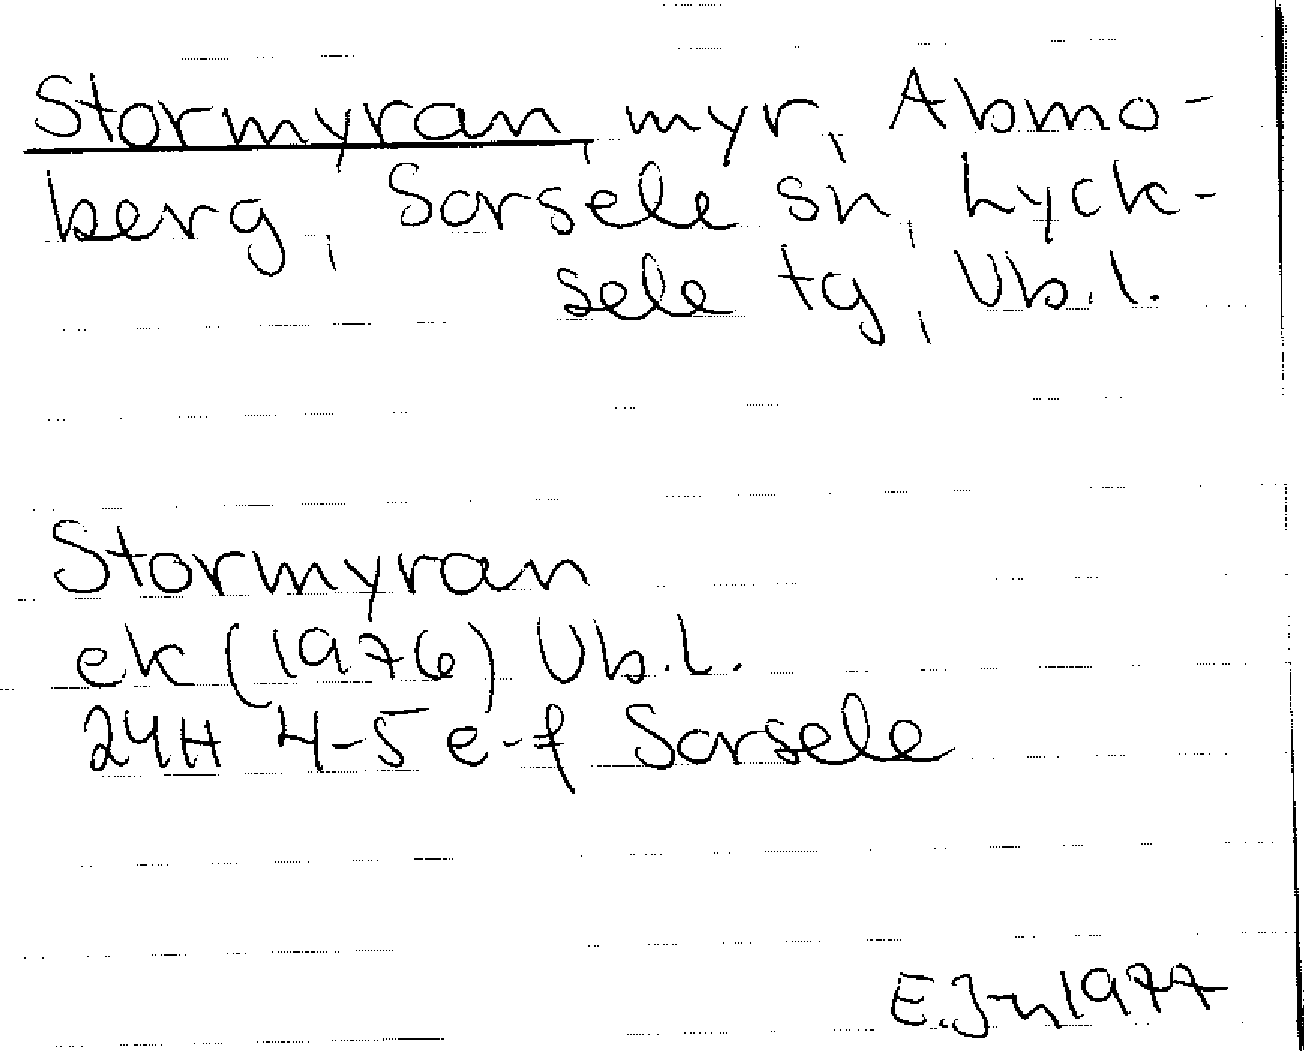 Stormyran, myr, Abmo-
berg, Sorsele sn, Lyck-
sele tg, Vb.l.
Stormyran
ek (1976) Vb.L.
24H 4-5 e-f Sorsele
E.J-n 1977